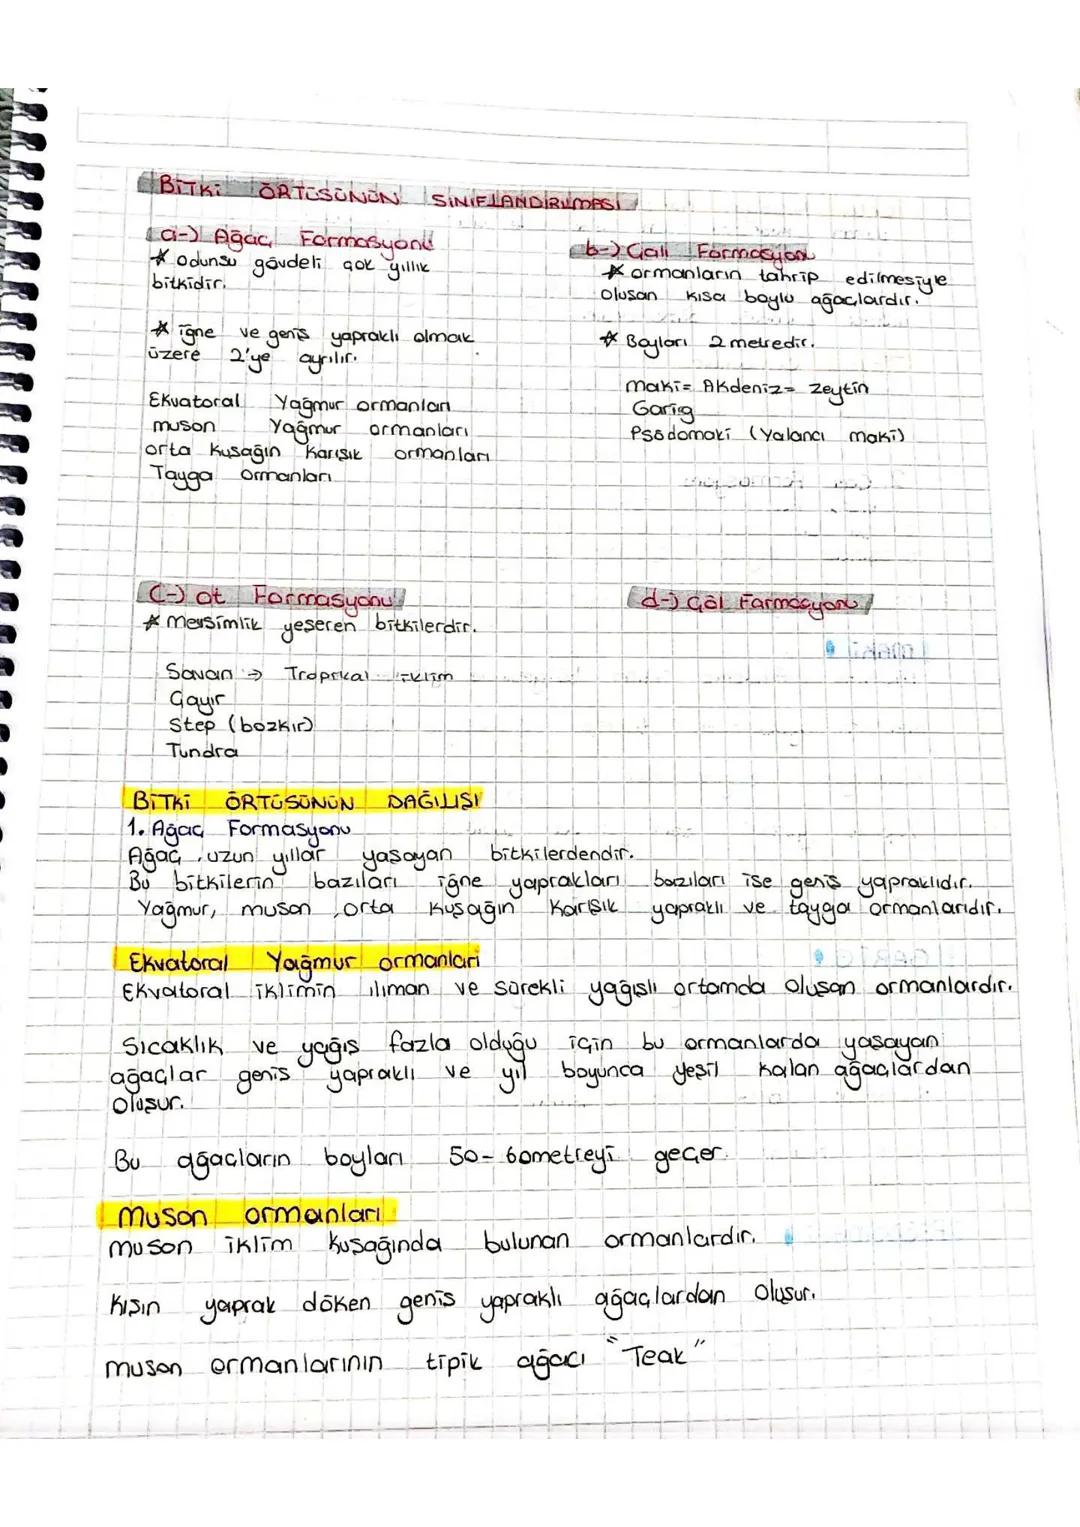 BİTKİ ÖRTÜSÜNÜN SINIFLANDIRILMASI
a-) Ağaç Formasyonu
* Odunsu gövdeli çok yıllık
bitkidir.
* iğne ve geniş yapraklı olmak
üzere 2'ye ayrılır.
Ekvatoral Yağmur ormanları
muson Yağmur ormanları
orta kuşağın karışık ormanları
Tayga ormanları
b-) Çalı Formasyonu
* ormanların tahrip edilmesiyle
oluşan kısa boylu ağaçlardır.
* Boyları 2 metredir.
maki= Akdeniz= zeytin
Garig
Psödomaki (Yalancı maki)
C-) ot Formasyonu
* Mevsimlik yeşeren bitkilerdir.
Savan → Tropikal iklim
Çayır
Step (bozkır)
Tundra
d-) Çöl Formasyonu
BİTKİ ÖRTÜSÜNÜN DAĞILIŞI
1. Ağaç Formasyonu
Ağaç, uzun yıllar yaşayan bitkilerdendir.
Bu bitkilerin bazıları iğne yaprakları bazıları ise geniş yapraklıdır.
Yağmur, muson, orta kuşağın karışık yapraklı ve tayga ormanlarıdır.
Ekvatoral Yağmur ormanlari
Ekvatoral iklimin ılıman ve sürekli yağışlı ortamda oluşan ormanlardır.
Sıcaklık ve yağış fazla olduğu için bu ormanlarda yaşayan
ağaçlar geniş yapraklı ve yıl boyunca yeşil kalan ağaçlardan
oluşur.
Bu ağaçların boyları 50-60metreyi geçer.
Muson ormanları
muson iklim kuşağında bulunan ormanlardır.
Kışın yaprak döken geniş yapraklı ağaçlardan oluşur.
muson ormanlarının tipik ağacı "Teak"